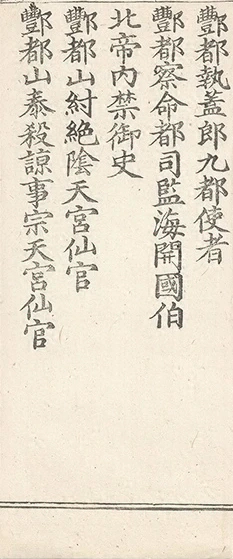 酆都執蓋郎九都使者
酆都察命都司監海開國伯
北帝內禁御史
酆都山紂絕陰天宮仙官
酆都山泰殺諒事宗天宮仙官